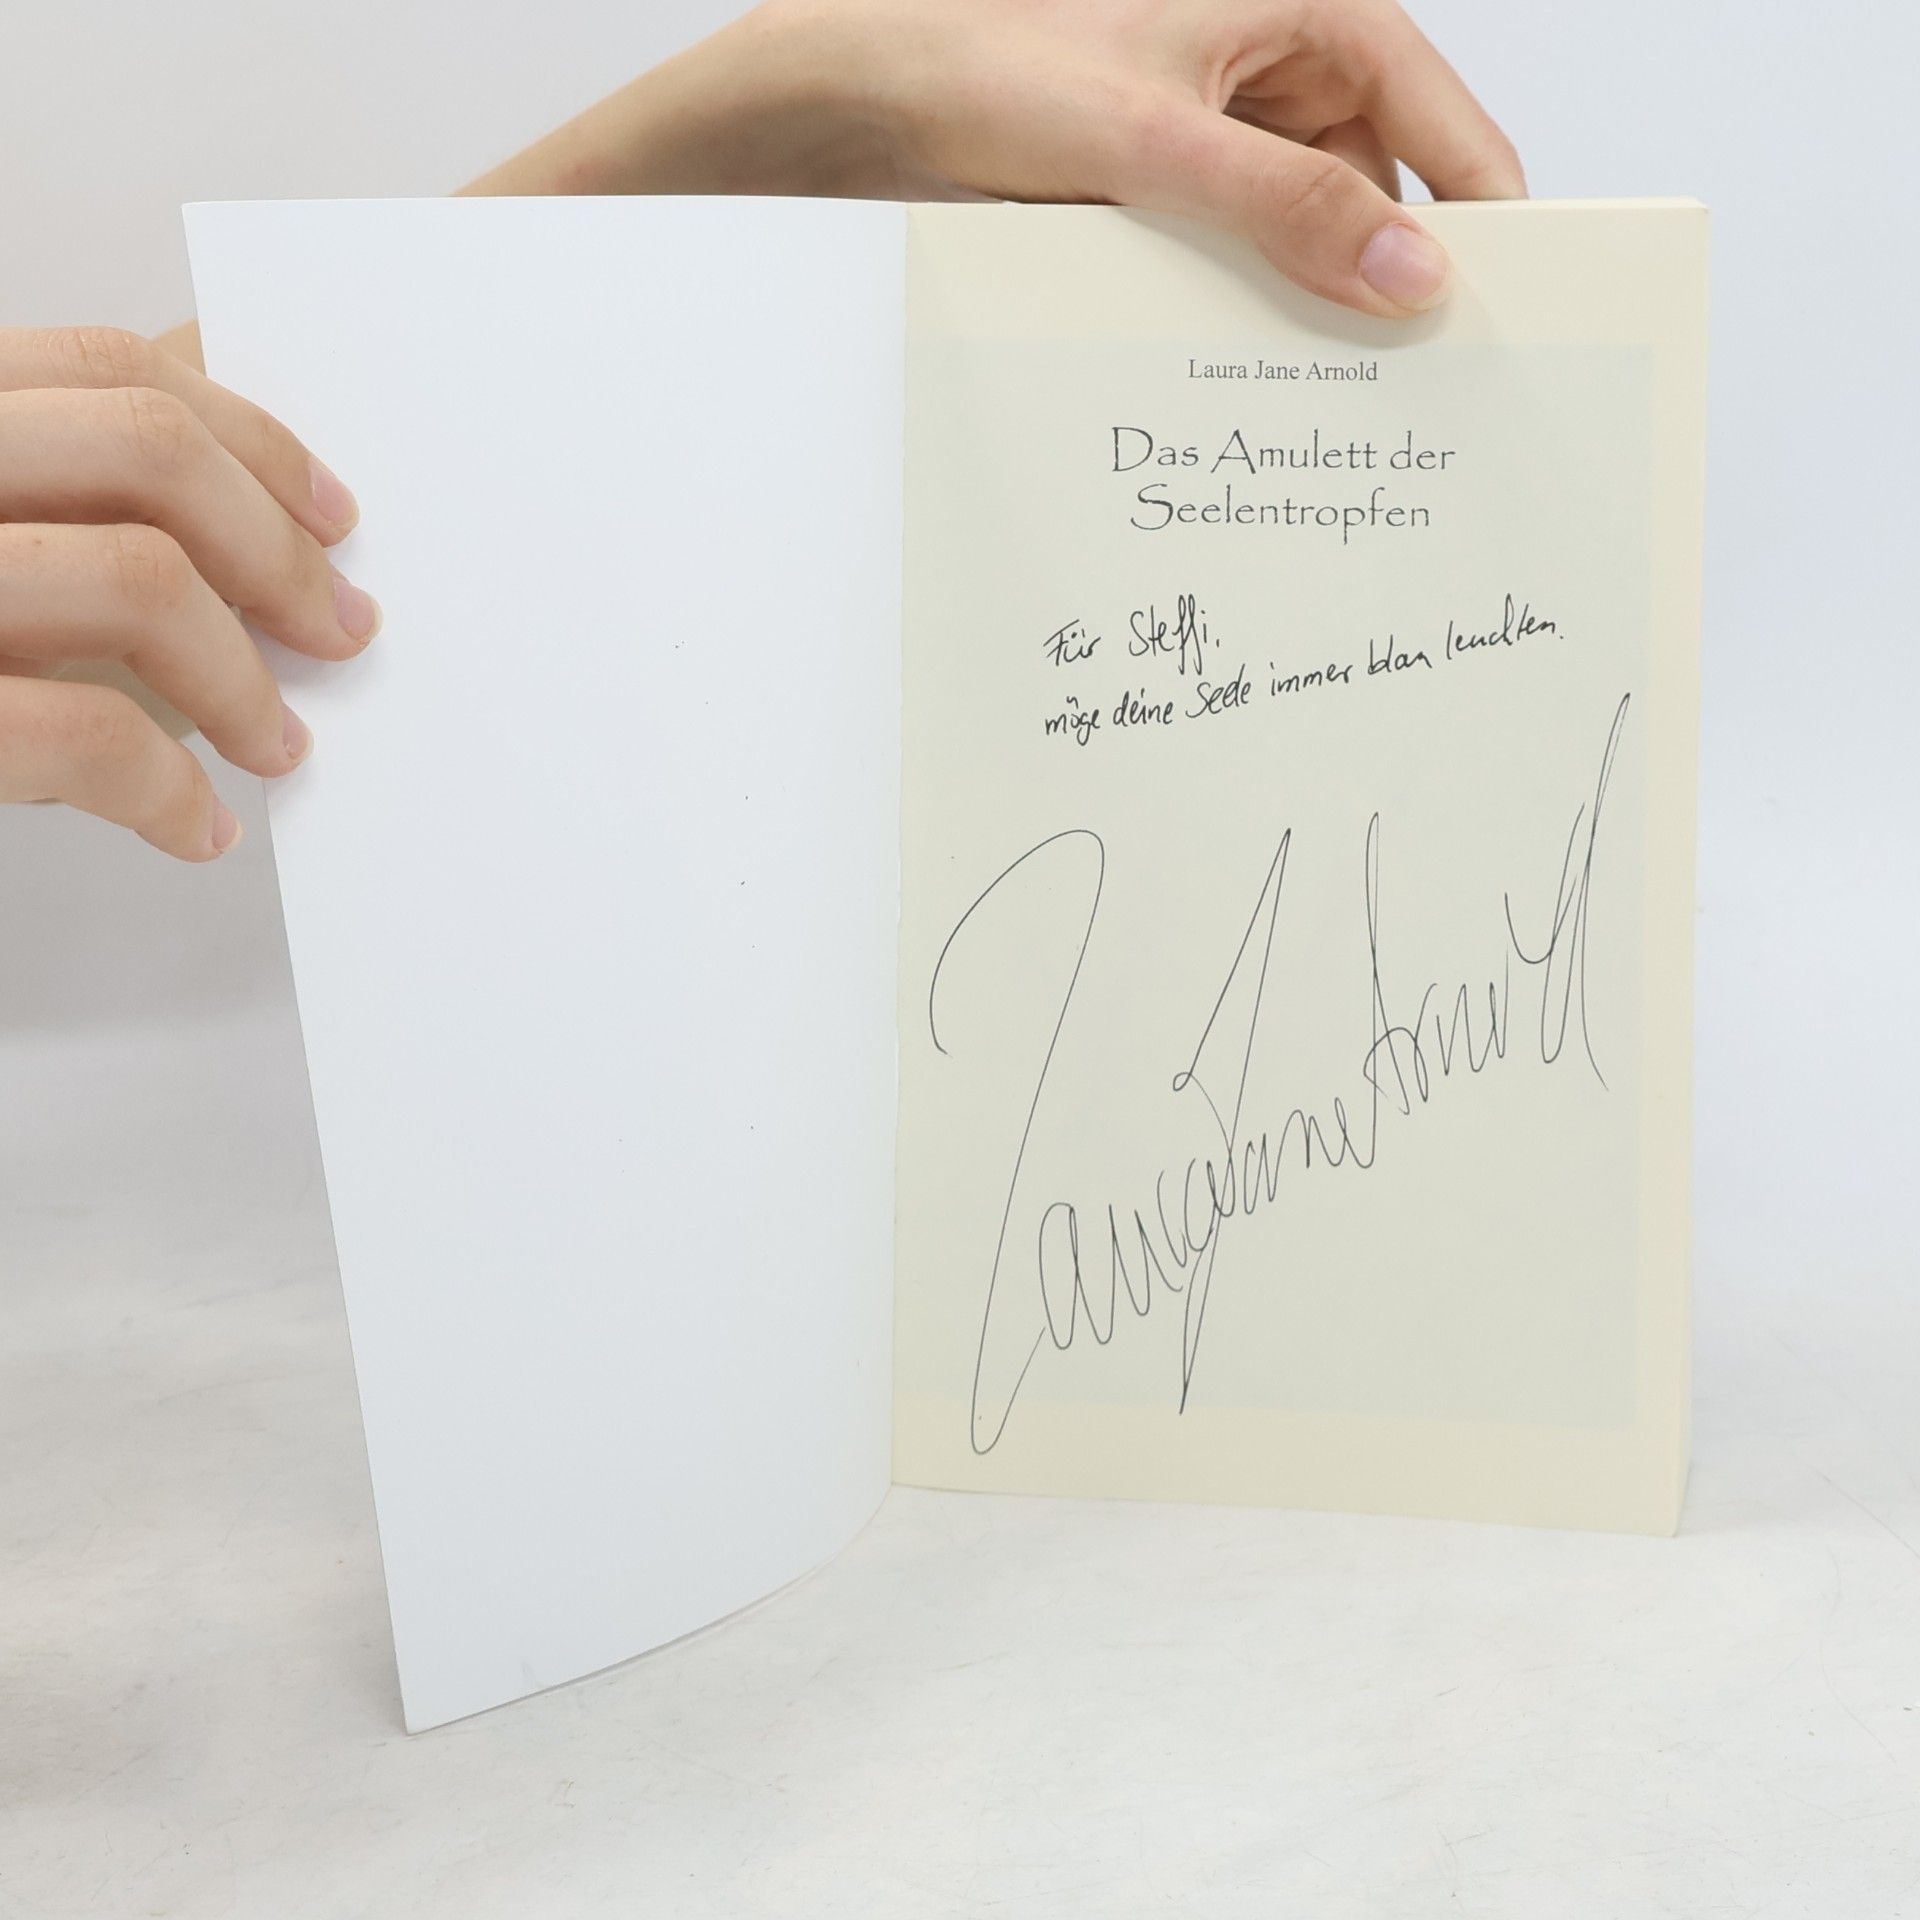 Laura Jane Arnold
Das Amulett der
Seelentropfen
Für Steffi,
möge deine Seele immer blau leuchten.
Laura Jane Arnold